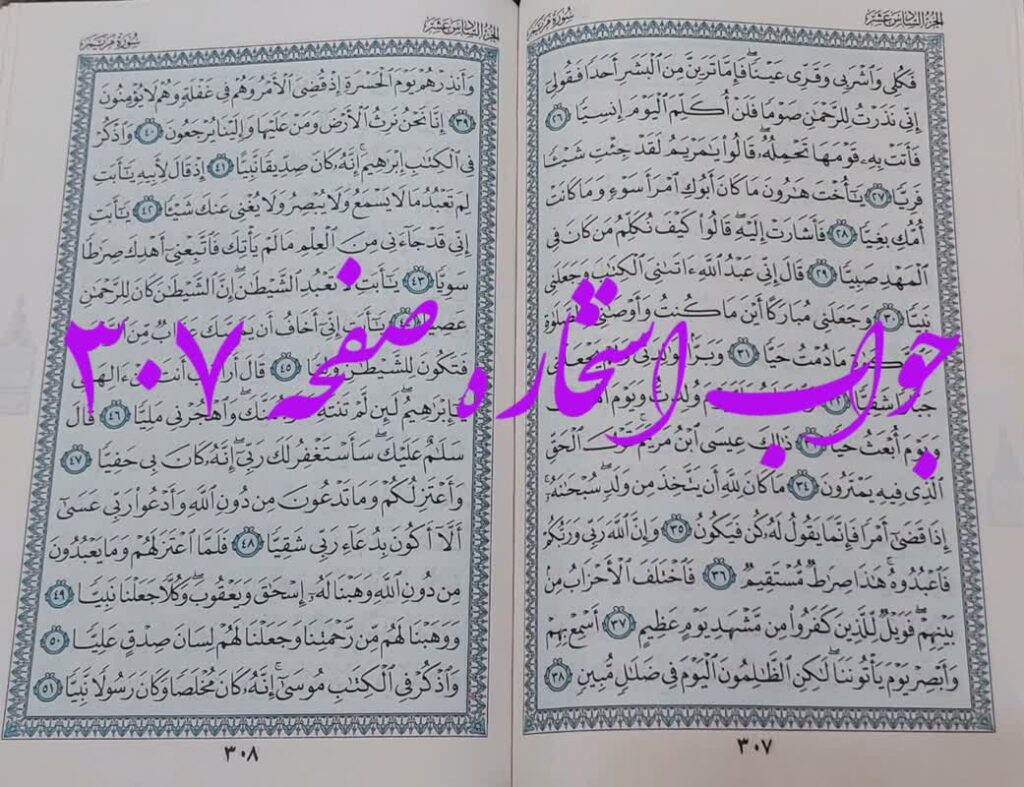 الجزء السادس عشر
سورة مريم
فَكُلِى وَٱشْرَبِى وَقَرِّى عَيْنًا ۖ فَإِمَّا تَرَيِنَّ مِنَ ٱلْبَشَرِ أَحَدًا فَقُولِىٓ
إِنِّى نَذَرْتُ لِلرَّحْمَٰنِ صَوْمًا فَلَنْ أُكَلِّمَ ٱلْيَوْمَ إِنسِيًّا ٢٦
فَأَتَتْ بِهِۦ قَوْمَهَا تَحْمِلُهُۥ ۖ قَالُوا۟ يَٰمَرْيَمُ لَقَدْ جِئْتِ شَيْـًٔا
فَرِيًّا ٢٧ يَٰٓأُخْتَ هَٰرُونَ مَا كَانَ أَبُوكِ ٱمْرَأَ سَوْءٍ وَمَا كَانَتْ
أُمُّكِ بَغِيًّا ٢٨ فَأَشَارَتْ إِلَيْهِ ۖ قَالُوا۟ كَيْفَ نُكَلِّمُ مَن كَانَ فِى
ٱلْمَهْدِ صَبِيًّا ٢٩ قَالَ إِنِّى عَبْدُ ٱللَّهِ ءَاتَىٰنِىَ ٱلْكِتَٰبَ وَجَعَلَنِى
نَبِيًّا ٣٠ وَجَعَلَنِى مُبَارَكًا أَيْنَ مَا كُنتُ وَأَوْصَٰنِى بِٱلصَّلَوٰةِ
مَا دُمْتُ حَيًّا ٣١ وَبَرًّۢا بِوَٰلِدَتِى وَلَمْ يَجْعَلْنِى
جَبَّارًا شَقِيًّا ٣٢ وُلِدتُّ وَيَوْمَ أَمُوتُ
وَيَوْمَ أُبْعَثُ حَيًّا ٣٣ ذَٰلِكَ عِيسَى ٱبْنُ مَرْيَمَ ۚ قَوْلَ ٱلْحَقِّ
ٱلَّذِى فِيهِ يَمْتَرُونَ ٣٤ مَا كَانَ لِلَّهِ أَن يَتَّخِذَ مِن وَلَدٍ ۖ سُبْحَٰنَهُۥٓ ۚ
إِذَا قَضَىٰٓ أَمْرًا فَإِنَّمَا يَقُولُ لَهُۥ كُن فَيَكُونُ ٣٥ وَإِنَّ ٱللَّهَ رَبِّى وَرَبُّكُمْ
فَٱعْبُدُوهُ ۚ هَٰذَا صِرَٰطٌ مُّسْتَقِيمٌ ٣٦ فَٱخْتَلَفَ ٱلْأَحْزَابُ مِنۢ
بَيْنِهِمْ ۖ فَوَيْلٌ لِّلَّذِينَ كَفَرُوا۟ مِن مَّشْهَدِ يَوْمٍ عَظِيمٍ ٣٧ أَسْمِعْ بِهِمْ
وَأَبْصِرْ يَوْمَ يَأْتُونَنَا ۖ لَٰكِنِ ٱلظَّٰلِمُونَ ٱلْيَوْمَ فِى ضَلَٰلٍ مُّبِينٍ ٣٨
٣٠٧
الجزء السادس عشر
سورة مريم
وَأَنذِرْهُمْ يَوْمَ ٱلْحَسْرَةِ إِذْ قُضِىَ ٱلْأَمْرُ وَهُمْ فِى غَفْلَةٍ وَهُمْ لَا يُؤْمِنُونَ
٣٩ إِنَّا نَحْنُ نَرِثُ ٱلْأَرْضَ وَمَنْ عَلَيْهَا وَإِلَيْنَا يُرْجَعُونَ ٤٠ وَٱذْكُرْ
فِى ٱلْكِتَٰبِ إِبْرَٰهِيمَ ۚ إِنَّهُۥ كَانَ صِدِّيقًا نَّبِيًّا ٤١ إِذْ قَالَ لِأَبِيهِ يَٰٓأَبَتِ
لِمَ تَعْبُدُ مَا لَا يَسْمَعُ وَلَا يُبْصِرُ وَلَا يُغْنِى عَنكَ شَيْـًٔا ٤٢ يَٰٓأَبَتِ
إِنِّى قَدْ جَآءَنِى مِنَ ٱلْعِلْمِ مَا لَمْ يَأْتِكَ فَٱتَّبِعْنِىٓ أَهْدِكَ صِرَٰطًا
سَوِيًّا ٤٣ يَٰٓأَبَتِ لَا تَعْبُدِ ٱلشَّيْطَٰنَ ۖ إِنَّ ٱلشَّيْطَٰنَ كَانَ لِلرَّحْمَٰنِ
عَصِيًّا ٤٤ يَٰٓأَبَتِ إِنِّىٓ أَخَافُ أَن يَمَسَّكَ عَذَابٌ مِّنَ ٱلرَّحْمَٰنِ
فَتَكُونَ لِلشَّيْطَٰنِ وَلِيًّا ٤٥ قَالَ أَرَاغِبٌ أَنتَ عَنْ ءَالِهَتِى
يَٰٓإِبْرَٰهِيمُ ۖ لَئِن لَّمْ تَنتَهِ لَأَرْجُمَنَّكَ ۖ وَٱهْجُرْنِى مَلِيًّا ٤٦ قَالَ
سَلَٰمٌ عَلَيْكَ ۖ سَأَسْتَغْفِرُ لَكَ رَبِّىٓ ۖ إِنَّهُۥ كَانَ بِى حَفِيًّا ٤٧
وَأَعْتَزِلُكُمْ وَمَا تَدْعُونَ مِن دُونِ ٱللَّهِ وَأَدْعُوا۟ رَبِّى عَسَىٰٓ
أَلَّآ أَكُونَ بِدُعَآءِ رَبِّى شَقِيًّا ٤٨ فَلَمَّا ٱعْتَزَلَهُمْ وَمَا يَعْبُدُونَ
مِن دُونِ ٱللَّهِ وَهَبْنَا لَهُۥٓ إِسْحَٰقَ وَيَعْقُوبَ ۖ وَكُلًّا جَعَلْنَا نَبِيًّا ٤٩
وَوَهَبْنَا لَهُم مِّن رَّحْمَتِنَا وَجَعَلْنَا لَهُمْ لِسَانَ صِدْقٍ عَلِيًّا ٥٠
وَٱذْكُرْ فِى ٱلْكِتَٰبِ مُوسَىٰٓ ۚ إِنَّهُۥ كَانَ مُخْلَصًا وَكَانَ رَسُولًا نَّبِيًّا ٥١
٣٠٨
جواب استخاره صفحه ۳۰۷